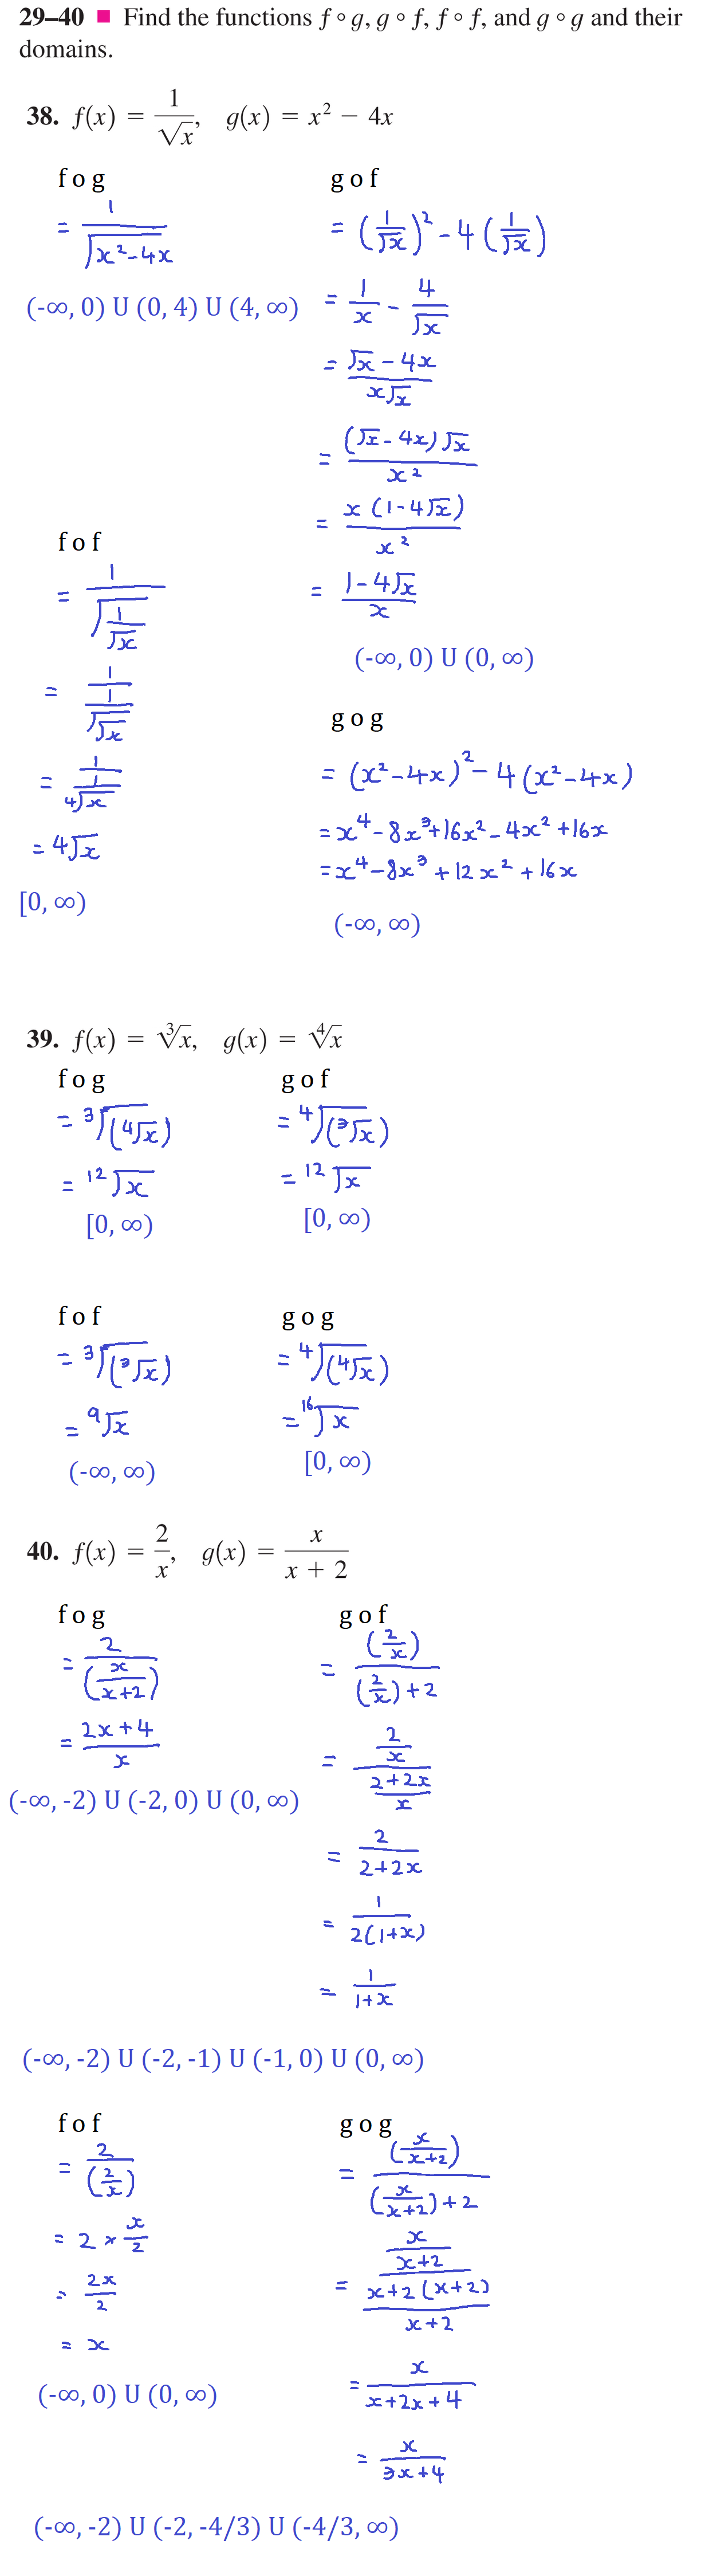 29–40 ■ Find the functions f ∘ g, g ∘ f, f ∘ f, and g ∘ g and their
domains.
38. f(x) = 1/√x, g(x) = x² − 4x
f o g
= 1/√(x²-4x)
(-∞, 0) U (0, 4) U (4, ∞)
g o f
= (1/√x)² - 4(1/√x)
= 1/x - 4/√x
= (√x - 4x)/(x√x)
= ((√x - 4x)√x)/x²
= (x(1-4√x))/x²
= (1-4√x)/x
(-∞, 0) U (0, ∞)
f o f
= 1/√(1/√x)
= 1/(1/√√x)
= 1/(1/⁴√x)
= ⁴√x
[0, ∞)
g o g
= (x²-4x)² - 4(x²-4x)
= x⁴ - 8x³ + 16x² - 4x² + 16x
= x⁴ - 8x³ + 12x² + 16x
(-∞, ∞)
39. f(x) = ³√x, g(x) = ⁴√x
f o g
= ³√(⁴√x)
= ¹²√x
[0, ∞)
g o f
= ⁴√(³√x)
= ¹²√x
[0, ∞)
f o f
= ³√(³√x)
= ⁹√x
(-∞, ∞)
g o g
= ⁴√(⁴√x)
= ¹⁶√x
[0, ∞)
40. f(x) = 2/x, g(x) = x/(x + 2)
f o g
= 2/(x/(x+2))
= (2x+4)/x
(-∞, -2) U (-2, 0) U (0, ∞)
g o f
= (2/x)/((2/x)+2)
= (2/x)/((2+2x)/x)
= 2/(2+2x)
= 1/(2(1+x))
= 1/(1+x)
(-∞, -2) U (-2, -1) U (-1, 0) U (0, ∞)
f o f
= 2/(2/x)
= 2 × x/2
= 2x/2
= x
(-∞, 0) U (0, ∞)
g o g
= (x/(x+2))/((x/(x+2))+2)
= (x/(x+2))/((x+2(x+2))/(x+2))
= x/(x+2x+4)
= x/(3x+4)
(-∞, -2) U (-2, -4/3) U (-4/3, ∞)